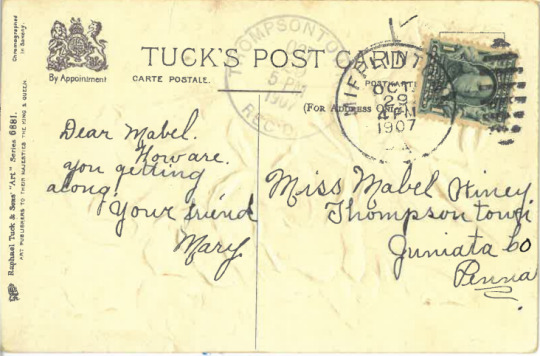 Chromographed
in Saxony.
By Appointment
TUCK'S POST CARD
CARTE POSTALE.
POSTKARTE
(FOR ADDRESS ONLY)
THOMPSONTO
5 PM
1907
REC'D.
MIFFLINT
OCT
29
4 PM
1907
Dear Mabel.
How are.
you getting
along!
Your friend
Mary
Miss Mabel Hiney
Thompsontown
Juniata Co
Penna
Raphael Tuck & Sons' "Art" Series 6881.
ART PUBLISHERS TO THEIR MAJESTIES THE KING & QUEEN.